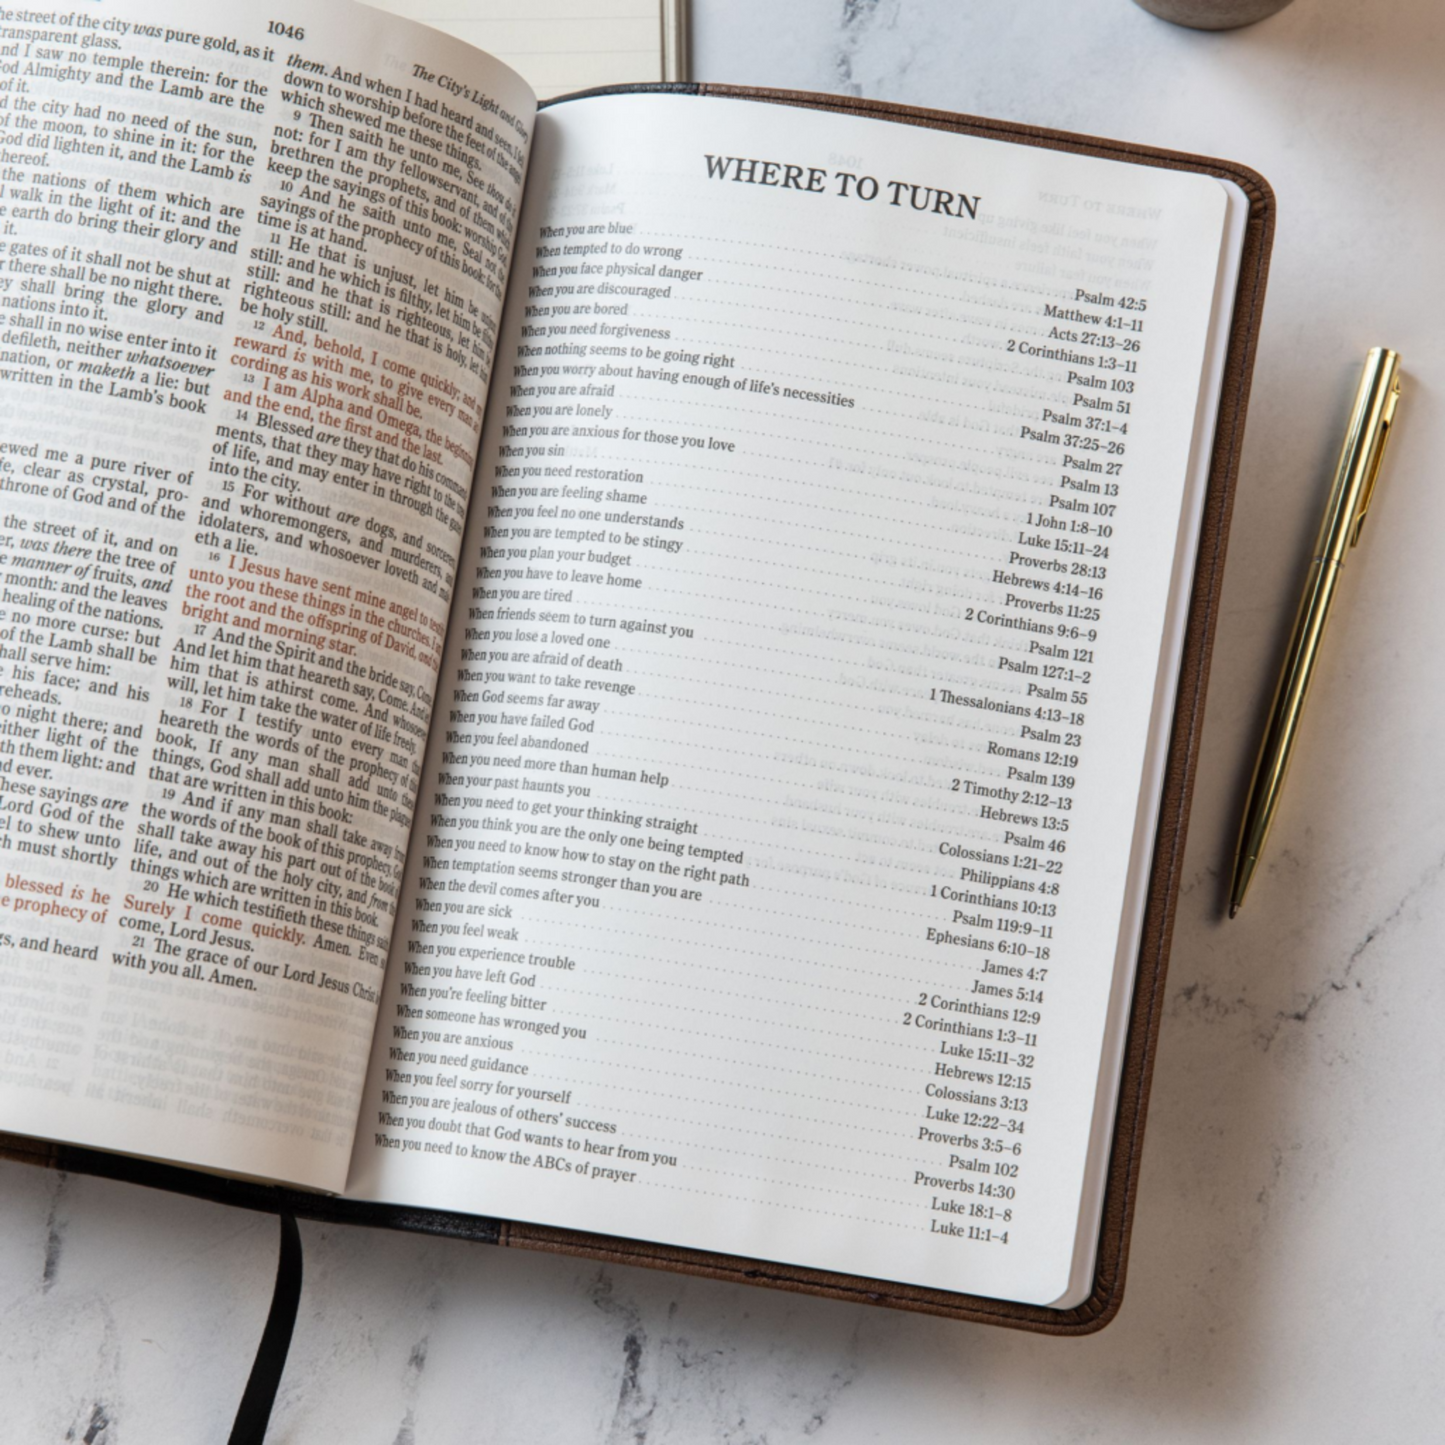 1046
The City's Light and Glory
he street of the city was pure gold, as it
transparent glass.
nd I saw no temple therein: for the
od Almighty and the Lamb are the
of it.
d the city had no need of the sun,
of the moon, to shine in it: for the
God did lighten it, and the Lamb is
hereof.
the nations of them which are
l walk in the light of it: and the
e earth do bring their glory and
it.
e gates of it shall not be shut at
r there shall be no night there.
ey shall bring the glory and
nations into it.
e shall in no wise enter into it
defileth, neither whatsoever
nation, or maketh a lie: but
written in the Lamb's book
ewed me a pure river of
fe, clear as crystal, pro-
throne of God and of the
the street of it, and on
er, was there the tree of
e manner of fruits, and
month: and the leaves
healing of the nations.
e no more curse: but
of the Lamb shall be
hall serve him:
e his face; and his
reheads.
o night there; and
either light of the
th them light: and
d ever.
hese sayings are
Lord God of the
el to shew unto
ch must shortly
blessed is he
e prophecy of
gs, and heard
them. And when I had heard and seen, I fell
down to worship before the feet of the angel
which shewed me these things.
9 Then saith he unto me, See thou do it
not: for I am thy fellowservant, and of thy
brethren the prophets, and of them which
keep the sayings of this book: worship God.
10 And he saith unto me, Seal not the
sayings of the prophecy of this book: for the
time is at hand.
11 He that is unjust, let him be unjust
still: and he which is filthy, let him be filthy
still: and he that is righteous, let him be
righteous still: and he that is holy, let him
be holy still.
12 And, behold, I come quickly; and my
reward is with me, to give every man ac-
cording as his work shall be.
13 I am Alpha and Omega, the beginning
and the end, the first and the last.
14 Blessed are they that do his command-
ments, that they may have right to the tree
of life, and may enter in through the gates
into the city.
15 For without are dogs, and sorcerers,
and whoremongers, and murderers, and
idolaters, and whosoever loveth and mak-
eth a lie.
16 I Jesus have sent mine angel to testify
unto you these things in the churches. I am
the root and the offspring of David, and the
bright and morning star.
17 And the Spirit and the bride say, Come.
And let him that heareth say, Come. And let
him that is athirst come. And whosoever
will, let him take the water of life freely.
18 For I testify unto every man that
heareth the words of the prophecy of this
book, If any man shall add unto these
things, God shall add unto him the plagues
that are written in this book:
19 And if any man shall take away from
the words of the book of this prophecy, God
shall take away his part out of the book of
life, and out of the holy city, and from the
things which are written in this book.
20 He which testifieth these things saith,
Surely I come quickly. Amen. Even so,
come, Lord Jesus.
21 The grace of our Lord Jesus Christ be
with you all. Amen.
WHERE TO TURN
When you are blue Psalm 42:5
When tempted to do wrong Matthew 4:1–11
When you face physical danger Acts 27:13–26
When you are discouraged 2 Corinthians 1:3–11
When you are bored Psalm 103
When you need forgiveness Psalm 51
When nothing seems to be going right Psalm 37:1–4
When you worry about having enough of life's necessities Psalm 37:25–26
When you are afraid Psalm 27
When you are lonely Psalm 13
When you are anxious for those you love Psalm 107
When you sin 1 John 1:8–10
When you need restoration Luke 15:11–24
When you are feeling shame Proverbs 28:13
When you feel no one understands Hebrews 4:14–16
When you are tempted to be stingy Proverbs 11:25
When you plan your budget 2 Corinthians 9:6–9
When you have to leave home Psalm 121
When you are tired Psalm 127:1–2
When friends seem to turn against you Psalm 55
When you lose a loved one 1 Thessalonians 4:13–18
When you are afraid of death Psalm 23
When you want to take revenge Romans 12:19
When God seems far away Psalm 139
When you have failed God 2 Timothy 2:12–13
When you feel abandoned Hebrews 13:5
When you need more than human help Psalm 46
When your past haunts you Colossians 1:21–22
When you need to get your thinking straight Philippians 4:8
When you think you are the only one being tempted 1 Corinthians 10:13
When you need to know how to stay on the right path Psalm 119:9–11
When temptation seems stronger than you are Ephesians 6:10–18
When the devil comes after you James 4:7
When you are sick James 5:14
When you feel weak 2 Corinthians 12:9
When you experience trouble 2 Corinthians 1:3–11
When you have left God Luke 15:11–32
When you're feeling bitter Hebrews 12:15
When someone has wronged you Colossians 3:13
When you are anxious Luke 12:22–34
When you need guidance Proverbs 3:5–6
When you feel sorry for yourself Psalm 102
When you are jealous of others' success Proverbs 14:30
When you doubt that God wants to hear from you Luke 18:1–8
When you need to know the ABCs of prayer Luke 11:1–4